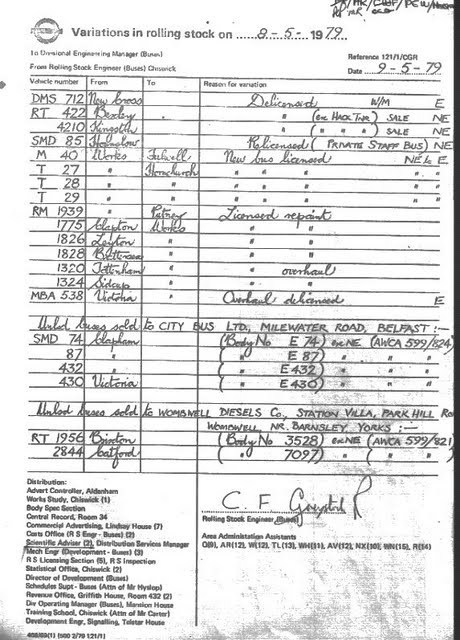 Variations in rolling stock on 8 - 5 - 1979
To Divisional Engineering Manager (Buses)
Reference 121/1/CGR
From Rolling Stock Engineer (Buses) Chiswick
Date 9-5-79
Vehicle number From To Reason for variation
DMS 712 New Cross Delicensed W/M E
RT 422 Bexley " (ex Hack Tmr) SALE NE
4210 Kingston " ( " " " ) SALE NE
SMD 85 Hounslow Relicensed (PRIVATE STAFF BUS) NE
M 40 Works Fulwell New bus licensed NE & E
T 27 " Hornchurch " " "
T 28 " " " " "
T 29 " " " " "
RM 1939 " Putney Licensed repaint
1775 Clapton Works " "
1826 Leyton " " "
1828 Battersea " " "
1320 Tottenham " " overhaul
1324 Sidcup " " "
MBA 538 Victoria " Overhaul delicensed E
Unlcd buses sold to CITY BUS LTD., MILEWATER ROAD, BELFAST :-
SMD 74 Clapham (Body No E 74) ex NE (AWCA 599/824)
87 " ( " E 87) " " "
432 " ( " E 432) " " "
430 Victoria ( " E 430) " " "
Unlcd buses sold to WOMBWELL DIESELS Co., STATION VILLA, PARK HILL Ro
WOMBWELL, NR. BARNSLEY, YORKS :-
RT 1956 Brixton (Body No 3528) ex NE (AWCA 599/821
2844 Catford ( " 7097) " ( "
Distribution:
Advert Controller, Aldenham
Works Study, Chiswick (1)
Body Spec Section
Central Record, Room 34
Commercial Advertising, Lindsay House (7)
Costs Office (R S Engr - Buses) (2)
Scientific Adviser (2), Distribution Services Manager
Mech Engr (Development - Buses) (3)
R S Licensing Section (5), R S Inspection
Statistical Office, Chiswick (2)
Director of Development (Buses)
Schedules Supt - Buses (Attn of Mr Hyslop)
Revenue Office, Griffith House, Room 432 (2)
Div Operating Manager (Buses), Mansion House
Training School, Chiswick (Attn of Mr Carter)
Development Engr, Signalling, Telstar House
C F
Rolling Stock Engineer (Buses)
Area Administration Assistants
Q(9), AR(12), W(12), TL(13), WH(11), AV(12), NX(10), WN(15), R(14)